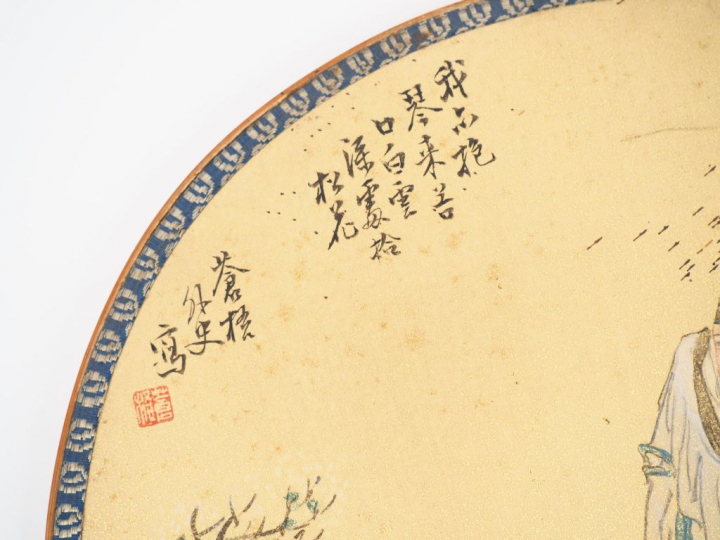 我亦抱
琴来若
口白雲
深處拾
松花
蒼梧
外史
寫